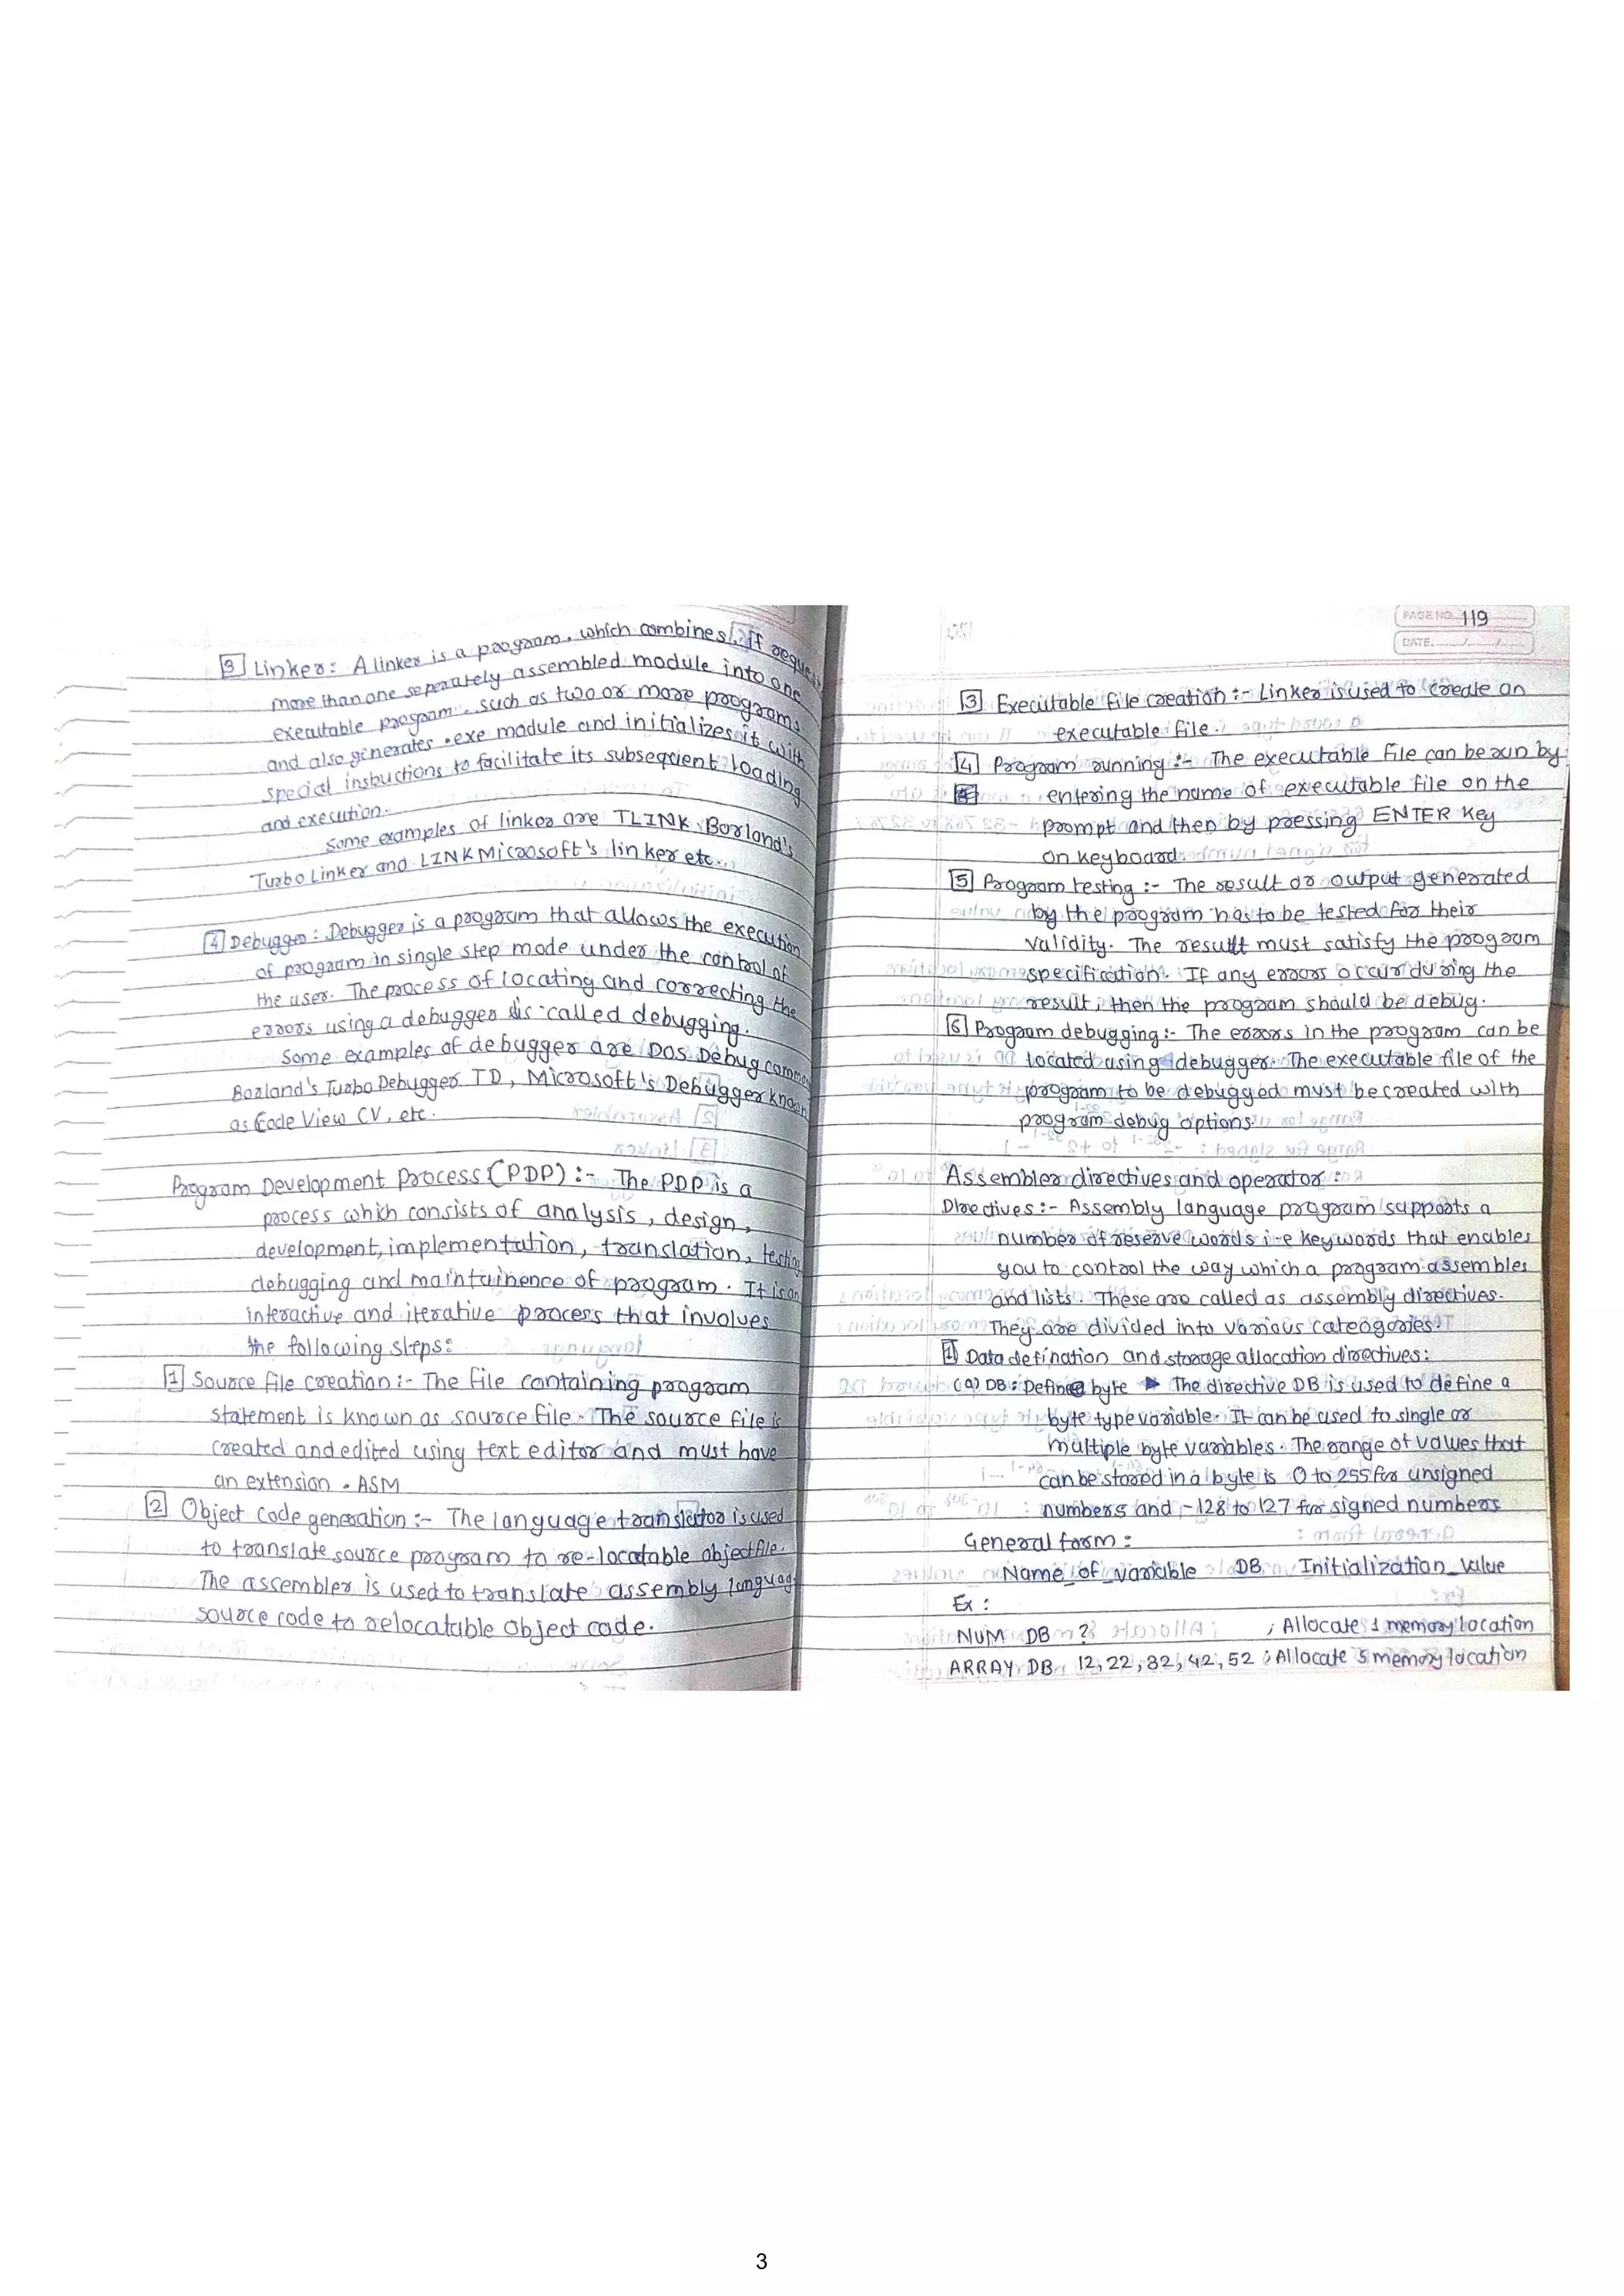 3 Linker: A linker is a program, which combines, if
more than one seperately assembled module into one
executable program, such as two or more programs
and also generates .exe module and initializes it with
special instructions to facilitate its subsequent loading
and execution.
Some examples of linker are TLINK, Borland's
Turbo Linker and LINK Microsoft's linker etc.
4 Debugger: Debugger is a program that allows the execution
of program in single step mode under the control of
the user. The process of locating and correcting the
errors using a debugger is called debugging.
Some examples of debugger are DOS Debug
Borland's Turbo Debugger TD, Microsoft's Debugger known
as Code View CV, etc.
Program Development Process (PDP) :- The PDP is a
process which consists of analysis, design,
development, implementation, translation, testing
debugging and maintainence of program. It is an
interactive and iterative process that involves
the following steps:
1 Source file creation :- The file containing program
statement is known as source file. The source file is
created and edited using text editor and must have
an extension .ASM
2 Object code generation :- The language translator is used
to translate source program to re-locatable object file.
The assembler is used to translate assembly languag
source code to relocatable object code.
PAGE NO. 119
DATE.
3 Executable file creation :- Linker is used to create an
executable file.
4 Program running :- The executable file can be run by
entering the name of executable file on the
prompt and then by pressing ENTER key
on keyboard.
5 Program testing :- The result or output generated
by the program has to be tested for their
validity. The result must satisfy the program
specification. If any errors occur during the
result, then the program should be debug.
6 Program debugging :- The errors in the program can be
located using debugger. The executable file of the
program to be debugged must be created with
program debug options.
Assembler directives and operator :
Directives :- Assembly language program supports a
number of reserve words i.e keywords that enables
you to control the way which a program assembles
and lists. These are called as assembly directives.
They are divided into various categories.
1 Data defination and storage allocation directives:
(a) DB : Define byte The directive DB is used to define a
byte type variable. It can be used to single or
multiple byte variables. The range of values that
can be stored in a byte is 0 to 255 for unsigned
numbers and -128 to 127 for signed numbers
General form :
Name_of_variable DB Initialization_Value
Ex :
NUM DB ? ; Allocate 1 memory location
ARRAY DB 12, 22, 32, 42, 52 ; Allocate 5 memory location
3